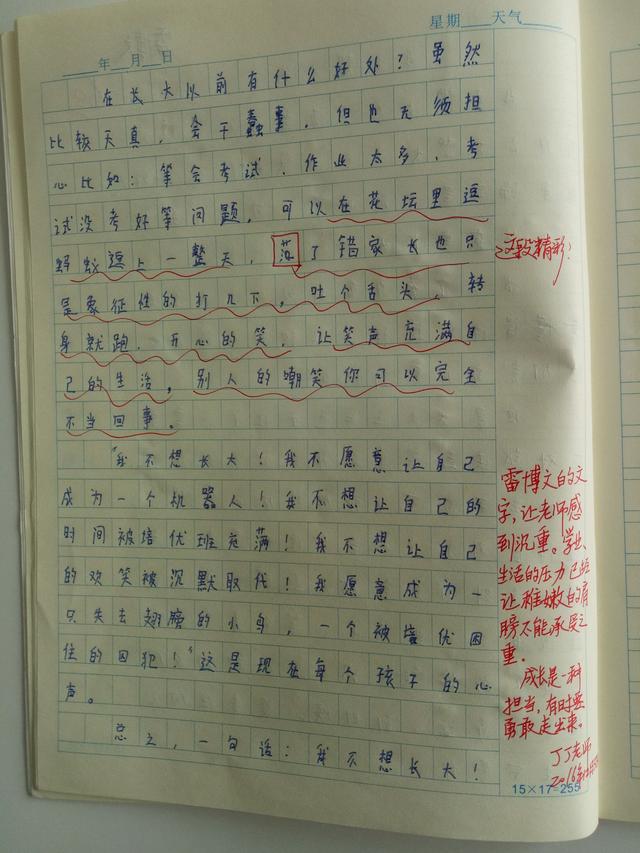 星期 天气
年 月 日
在长大以前有什么好处？虽然
比较天真，会干蠢事，但也无须担
心比如：等会考试，作业太多，考
试没考好等问题，可以在花坛里逗
蚂蚁逗上一整天，了错家长也只
是象征性的打几下。吐个舌头，转
身就跑，开心的笑，让笑声充满自
己的生活。别人的嘲笑你可以完全
不当回事。
"我不想长大！我不愿意让自己
成为一个机器人！我不想让自己的
时间被培优班充满！我不想让自己
的欢笑被沉默取代！我愿意成为一
只失去翅膀的小鸟，一个被培优困
住的囚犯！"这是现在每个孩子的心
声。
总之，一句话：我不想长大！
这段精彩！
雷博文的文
字，让老师感
到沉重。学业、
生活的压力已经
让稚嫩的肩
膀不能承受之
重。
成长是一种
担当，有时要
勇敢走出来。
丁丁老师
2016年
15×17=255